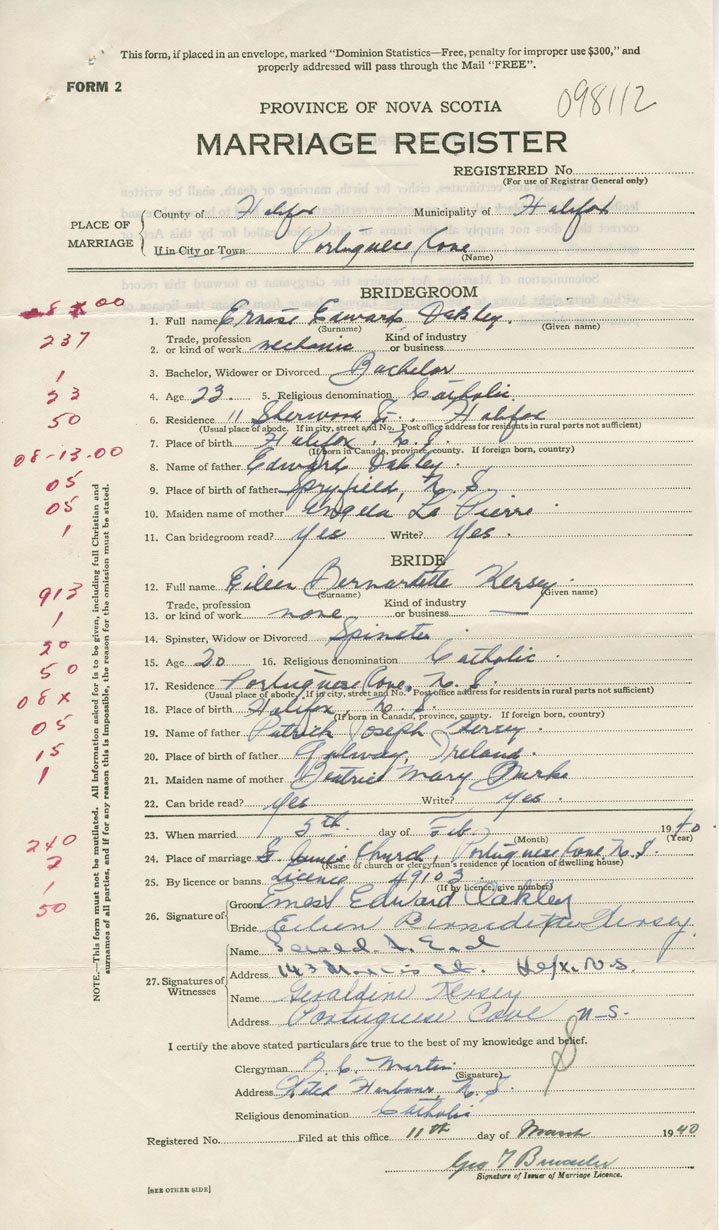 This form, if placed in an envelope, marked "Dominion Statistics—Free, penalty for improper use $300," and
properly addressed will pass through the Mail "FREE".
FORM 2
098112
PROVINCE OF NOVA SCOTIA
MARRIAGE REGISTER
REGISTERED No.
(For use of Registrar General only)
PLACE OF MARRIAGE
County of Halifax Municipality of Halifax
If in City or Town Portuguese Cove
(Name)
BRIDEGROOM
08 x 00
1. Full name Ernest Edward Oakley.
(Surname) (Given name)
237
Trade, profession Kind of industry
2. or kind of work mechanic or business
1
3. Bachelor, Widower or Divorced Bachelor
23
4. Age 23. 5. Religious denomination Catholic.
50
6. Residence 11 Sherwood St., Halifax
(Usual place of abode. If in city, street and No. Post office address for residents in rural parts not sufficient)
7. Place of birth Halifax, N.S.
(If born in Canada, province, county. If foreign born, country)
08-13-00
8. Name of father Edward Oakley.
05
9. Place of birth of father Spryfield, N.S.
05
10. Maiden name of mother Angela La Pierre
1
11. Can bridegroom read? Yes Write? Yes.
BRIDE
12. Full name Eileen Bernardette Kersey.
(Surname) (Given name)
913
Trade, profession Kind of industry
13. or kind of work none. or business —
1
14. Spinster, Widow or Divorced Spinster
20
15. Age 20 16. Religious denomination Catholic.
50
17. Residence Portuguese Cove, N.S.
(Usual place of abode. If in city, street and No. Post office address for residents in rural parts not sufficient)
08x
18. Place of birth Halifax, N.S.
(If born in Canada, province, county. If foreign born, country)
05
19. Name of father Patrick Joseph Kersey.
15
20. Place of birth of father Galway, Ireland.
1
21. Maiden name of mother Beatrice Mary Burke
22. Can bride read? Yes Write? Yes.
23. When married 5th day of Feb. 1940
(Month) (Year)
240
24. Place of marriage Church, Portuguese Cove N.S.
(Name of church or clergyman's residence or location of dwelling house)
2
25. By licence or banns Licence 49103.
(If by licence, give number)
1
50
26. Signature of
Groom Ernest Edward Oakley
Bride Eileen Bernadette Kersey.
27. Signatures of Witnesses
Name Gerald
Address 143 Morris St. Hlfx. N.S.
Name Geraldine Kersey
Address Portuguese Cove N-S.
I certify the above stated particulars are true to the best of my knowledge and belief.
Clergyman B. C. Martin
(Signature)
Address Ketch Harbour, N.S.
Religious denomination Catholic
Registered No. Filed at this office 11th day of March 1940
Geo T
Signature of Issuer of Marriage Licence.
[SEE OTHER SIDE]
NOTE.—This form must not be mutilated. All information asked for is to be given, including full Christian and
surnames of all parties, and if for any reason this is impossible, the reason for the omission must be stated.